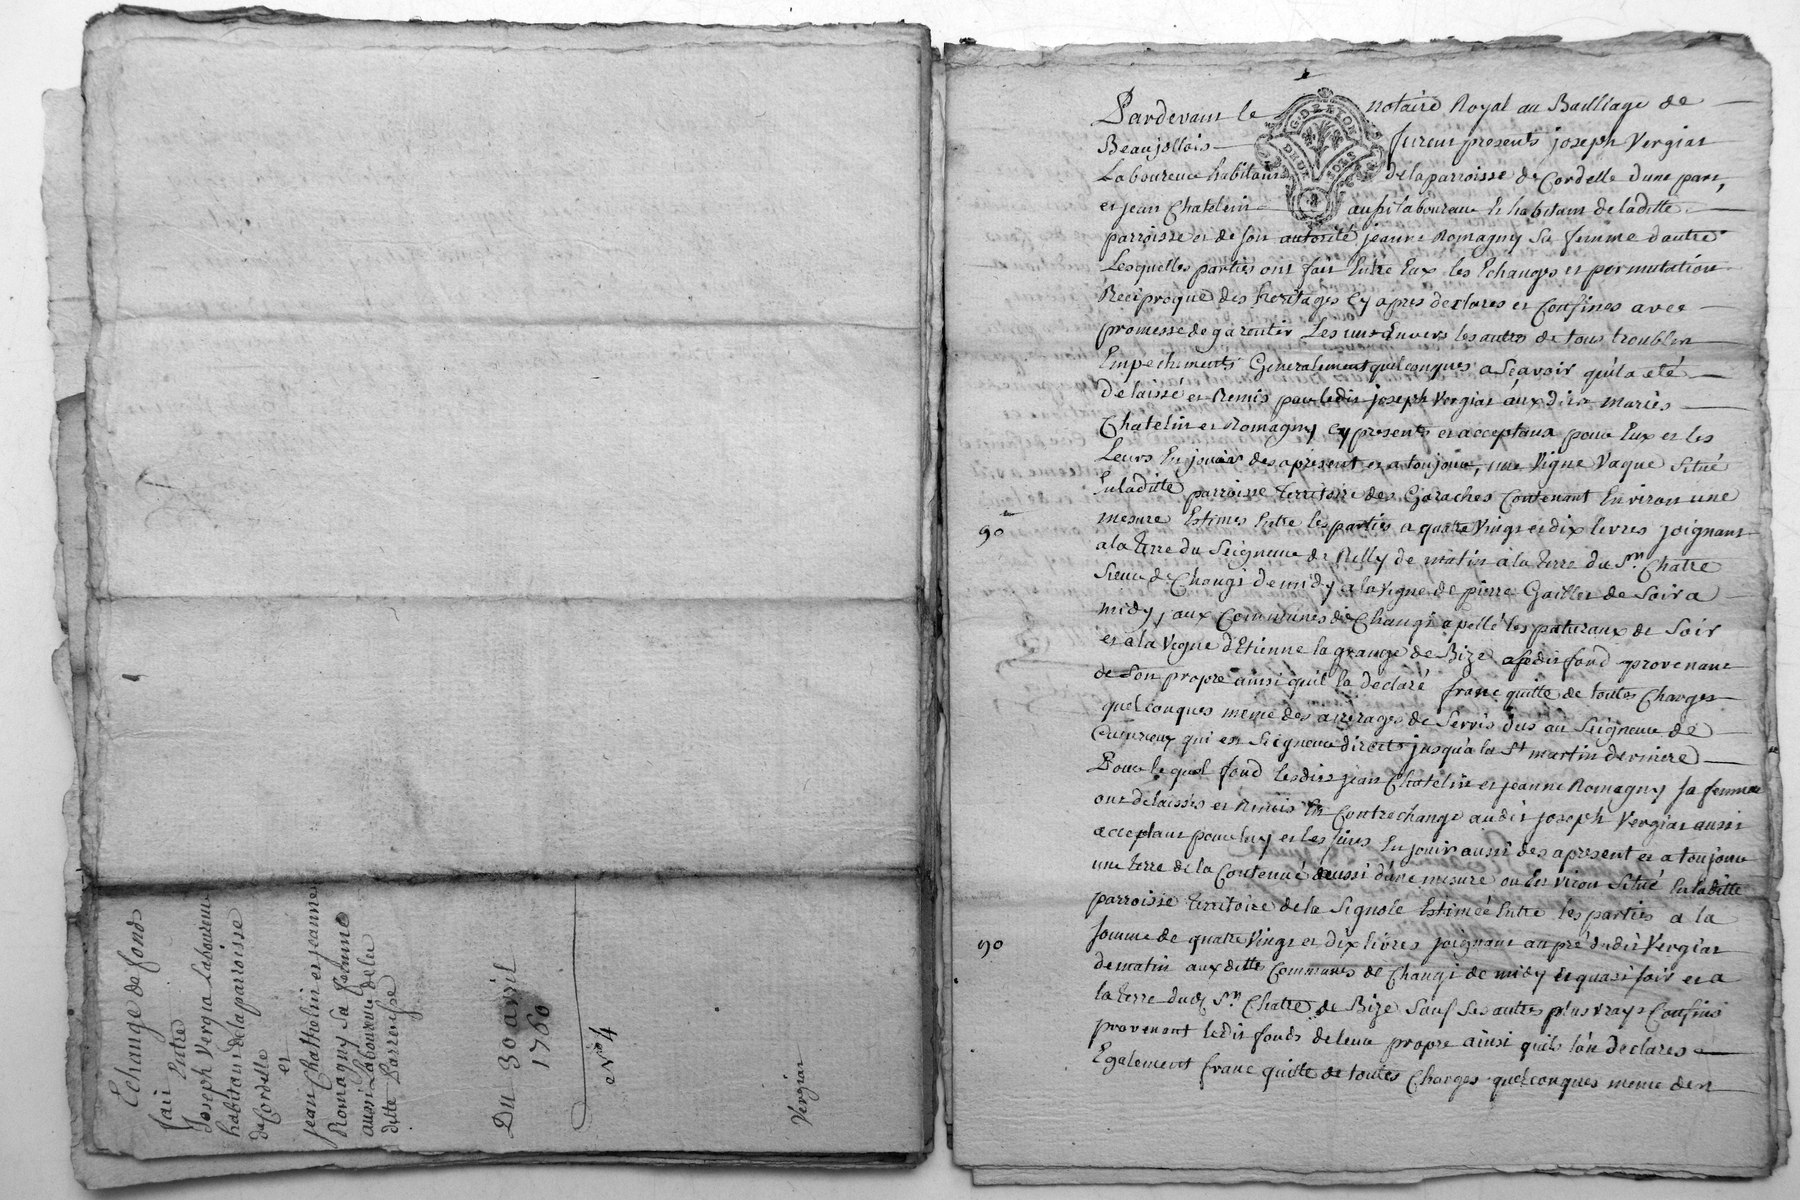 Echange de fond
fait Entre
Joseph Vergia Laboureur
habitan de la parroisse
de Cordelle
et
jean Chathelin et jeanne
Romagny sa femme
aussi Laboureur de la
ditte Parroisse
Du 30 avril
1760
N° 4
Vergiat
Pardevant le notaire Royal au Bailliage de
G. DE LYON
DEUX SOLS
Beaujollois furent presents joseph Vergiat
Laboureur habitant de la parroisse de Cordelle dune part,
et jean Chatelin aussi laboureur et habitant de laditte
parroisse et de son autorité jeanne Romagny sa femme dautre
Lesquelles parties ont fait Entre Eux les Echanges et permutation
Reciproque des heritages cy apres declares et Confines avec
promesse de garentir Les uns Envers les autres de tous troubles
Empechements Generalement quelconques a Scavoir quil a eté
Delaissé et Remis par ledit joseph Vergiat aux dits mariés
Chatelin et Romagny cy presents et acceptant pour Eux et les
Leurs En jouir des apresent et a toujour, une Vigne Vaque Situé
En laditte parroisse territoire des Garaches Contenant Environ une
90
mesure Estimes Entre les parties a quatre Vingt et dix livres joignant
a la terre du Seigneur de Rilly de matin a la terre du Sr. Chatre
Sieur de Changi de midy a la Vigne de pierre Gailler de Soir a
midy, aux Communes de Changi apellé les paturaux de Soir
et a la Vigne d'Etienne la grange de Bize ledit fond provenant
de Son propre ainsi quil la declaré franc quitte de toutes Charges
quelconques meme des arrerages de Servis dus au Seigneur de
qui est Seigneur direct jusqu'a la St martin derniere
Pour lequel fond lesdits jean Chatelin et jeanne Romagny sa femme
ont delaissés et Remis En Contrechange audit joseph Vergiat aussi
acceptant pour luy et les siens En jouir aussi des apresent et a toujour
une terre de la Contenue d'une mesure ou Environ Situé En laditte
parroisse territoire de la Signole Estimée Entre les parties a la
90
somme de quatre Vingt et Dix livres joignant au pré dudit Vergiat
de matin aux dittes Communes de Changi de midy et quasi soir et a
la terre dud Sr. Chatre de Bize Sauf ses autres plus vrays Confins
provenant ledit fonds de leur propre ainsi quils l'on declares
Egalement franc quitte de toutes Charges quelconques meme des